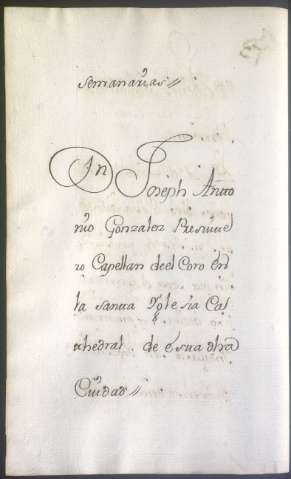 semanarias//
Dn Joseph Anto
nio Gonzalez Presvite
ro Capellan de el Coro en
la santa Yglesia Cat
thedral de esta dha
Ciudad//